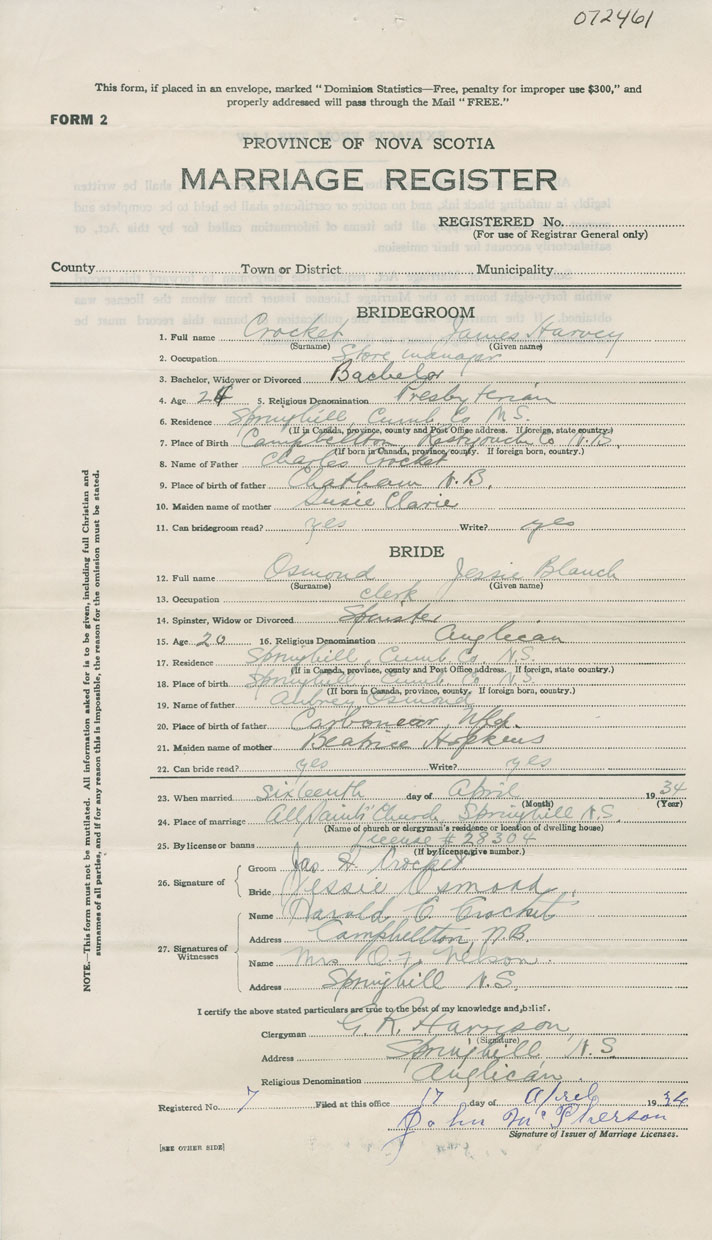 072461
This form, if placed in an envelope, marked "Dominion Statistics—Free, penalty for improper use $300," and
properly addressed will pass through the Mail "FREE."
FORM 2
PROVINCE OF NOVA SCOTIA
MARRIAGE REGISTER
REGISTERED No.
(For use of Registrar General only)
County Town or District Municipality
BRIDEGROOM
1. Full name Crocket James Harvey
(Surname) (Given name)
2. Occupation Store manager
3. Bachelor, Widower or Divorced Bachelor
4. Age 24 5. Religious Denomination Presbyterian
6. Residence Springhill, Cumb. Co. N.S.
(If in Canada, province, county and Post Office address. If foreign, state country.)
7. Place of Birth Campbellton, Restigouche Co N.B.
(If born in Canada, province, county. If foreign born, country.)
8. Name of Father Charles Crocket
9. Place of birth of father Chatham N.B.
10. Maiden name of mother Susie Clarie
11. Can bridegroom read? yes Write? yes
BRIDE
12. Full name Osmond Jessie Blanch
(Surname) (Given name)
13. Occupation clerk
14. Spinster, Widow or Divorced Spinster
15. Age 20 16. Religious Denomination Anglican
17. Residence Springhill, Cumb. Co. N.S.
(If in Canada, province, county and Post Office address. If foreign, state country.)
18. Place of birth Springhill Cumb. Co N.S.
(If born in Canada, province, county. If foreign born, country.)
19. Name of father Aubrey Osmond
20. Place of birth of father Carbonear, Nfld.
21. Maiden name of mother Beatrice Hopkins
22. Can bride read? yes Write? yes
23. When married sixteenth day of April 1934
(Month) (Year)
24. Place of marriage All Saints' Church, Springhill N.S.
(Name of church or clergyman's residence or location of dwelling house)
25. By license or banns License # 28304
(If by license, give number.)
26. Signature of Groom Jas H Crocket
Bride Jessie Osmond
27. Signatures of Witnesses
Name Harold C. Crocket
Address Campbellton, N.B.
Name Mrs O. F. Nelson
Address Springhill N.S.
I certify the above stated particulars are true to the best of my knowledge and belief.
Clergyman G. R. Harrison
(Signature)
Address Springhill N.S
Religious Denomination Anglican
Registered No. 7 Filed at this office 17 day of April 1934
John McPherson
Signature of Issuer of Marriage Licenses.
[SEE OTHER SIDE]
NOTE.—This form must not be mutilated. All information asked for is to be given, including full Christian and
surnames of all parties, and if for any reason this is impossible, the reason for the omission must be stated.